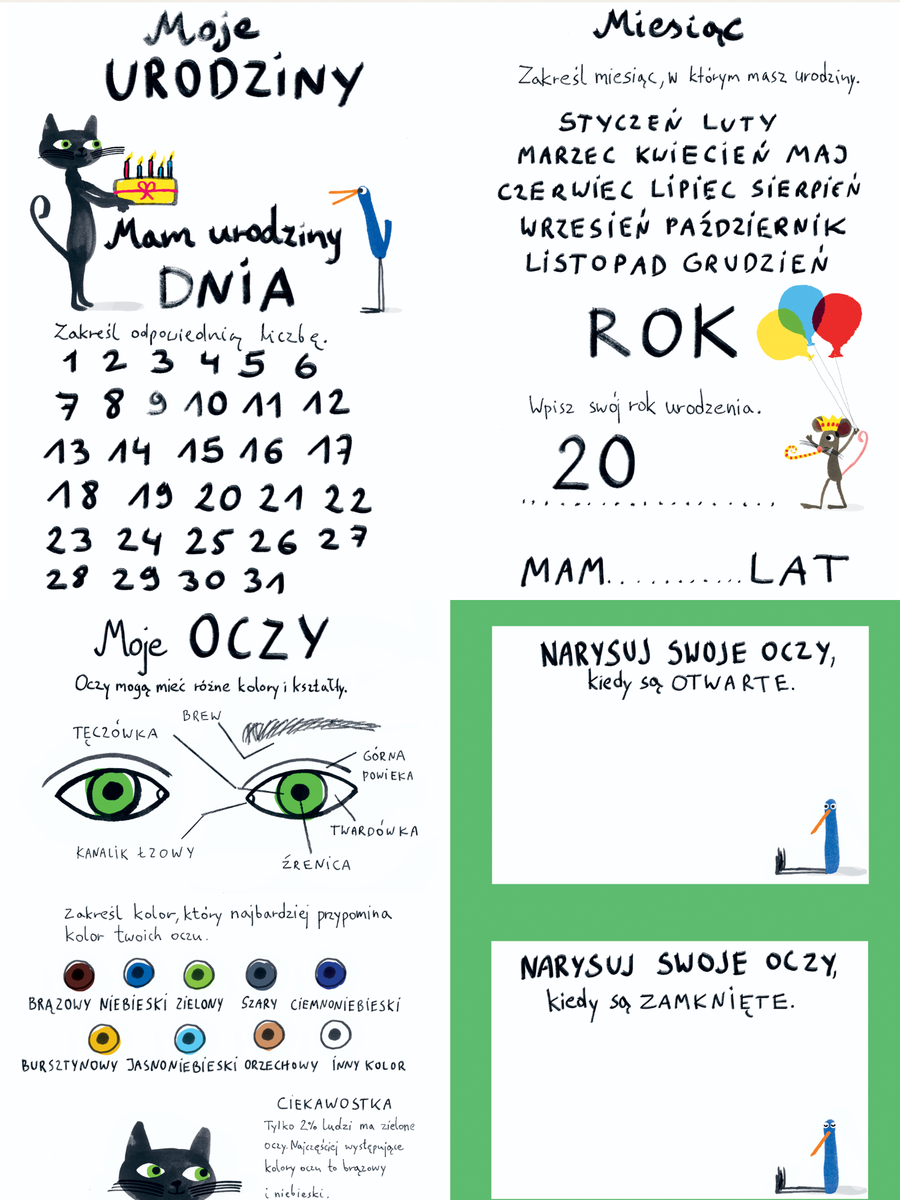 Moje
URODZINY
Mam urodziny
DNIA
Zakreśl odpowiednią liczbę.
1 2 3 4 5 6
7 8 9 10 11 12
13 14 15 16 17
18 19 20 21 22
23 24 25 26 27
28 29 30 31
Miesiąc
Zakreśl miesiąc, w którym masz urodziny.
STYCZEŃ LUTY
MARZEC KWIECIEŃ MAJ
CZERWIEC LIPIEC SIERPIEŃ
WRZESIEŃ PAŹDZIERNIK
LISTOPAD GRUDZIEŃ
ROK
Wpisz swój rok urodzenia.
20
MAM...........LAT
Moje OCZY
Oczy mogą mieć różne kolory i kształty.
BREW
TĘCZÓWKA
GÓRNA
POWIEKA
TWARDÓWKA
KANALIK ŁZOWY
ŹRENICA
Zakreśl kolor, który najbardziej przypomina
kolor twoich oczu.
BRĄZOWY NIEBIESKI ZIELONY SZARY CIEMNONIEBIESKI
BURSZTYNOWY JASNONIEBIESKI ORZECHOWY INNY KOLOR
CIEKAWOSTKA
Tylko 2% ludzi ma zielone
oczy. Najczęściej występujące
kolory oczu to brązowy
i niebieski.
NARYSUJ SWOJE OCZY,
kiedy są OTWARTE.
NARYSUJ SWOJE OCZY,
kiedy są ZAMKNIĘTE.